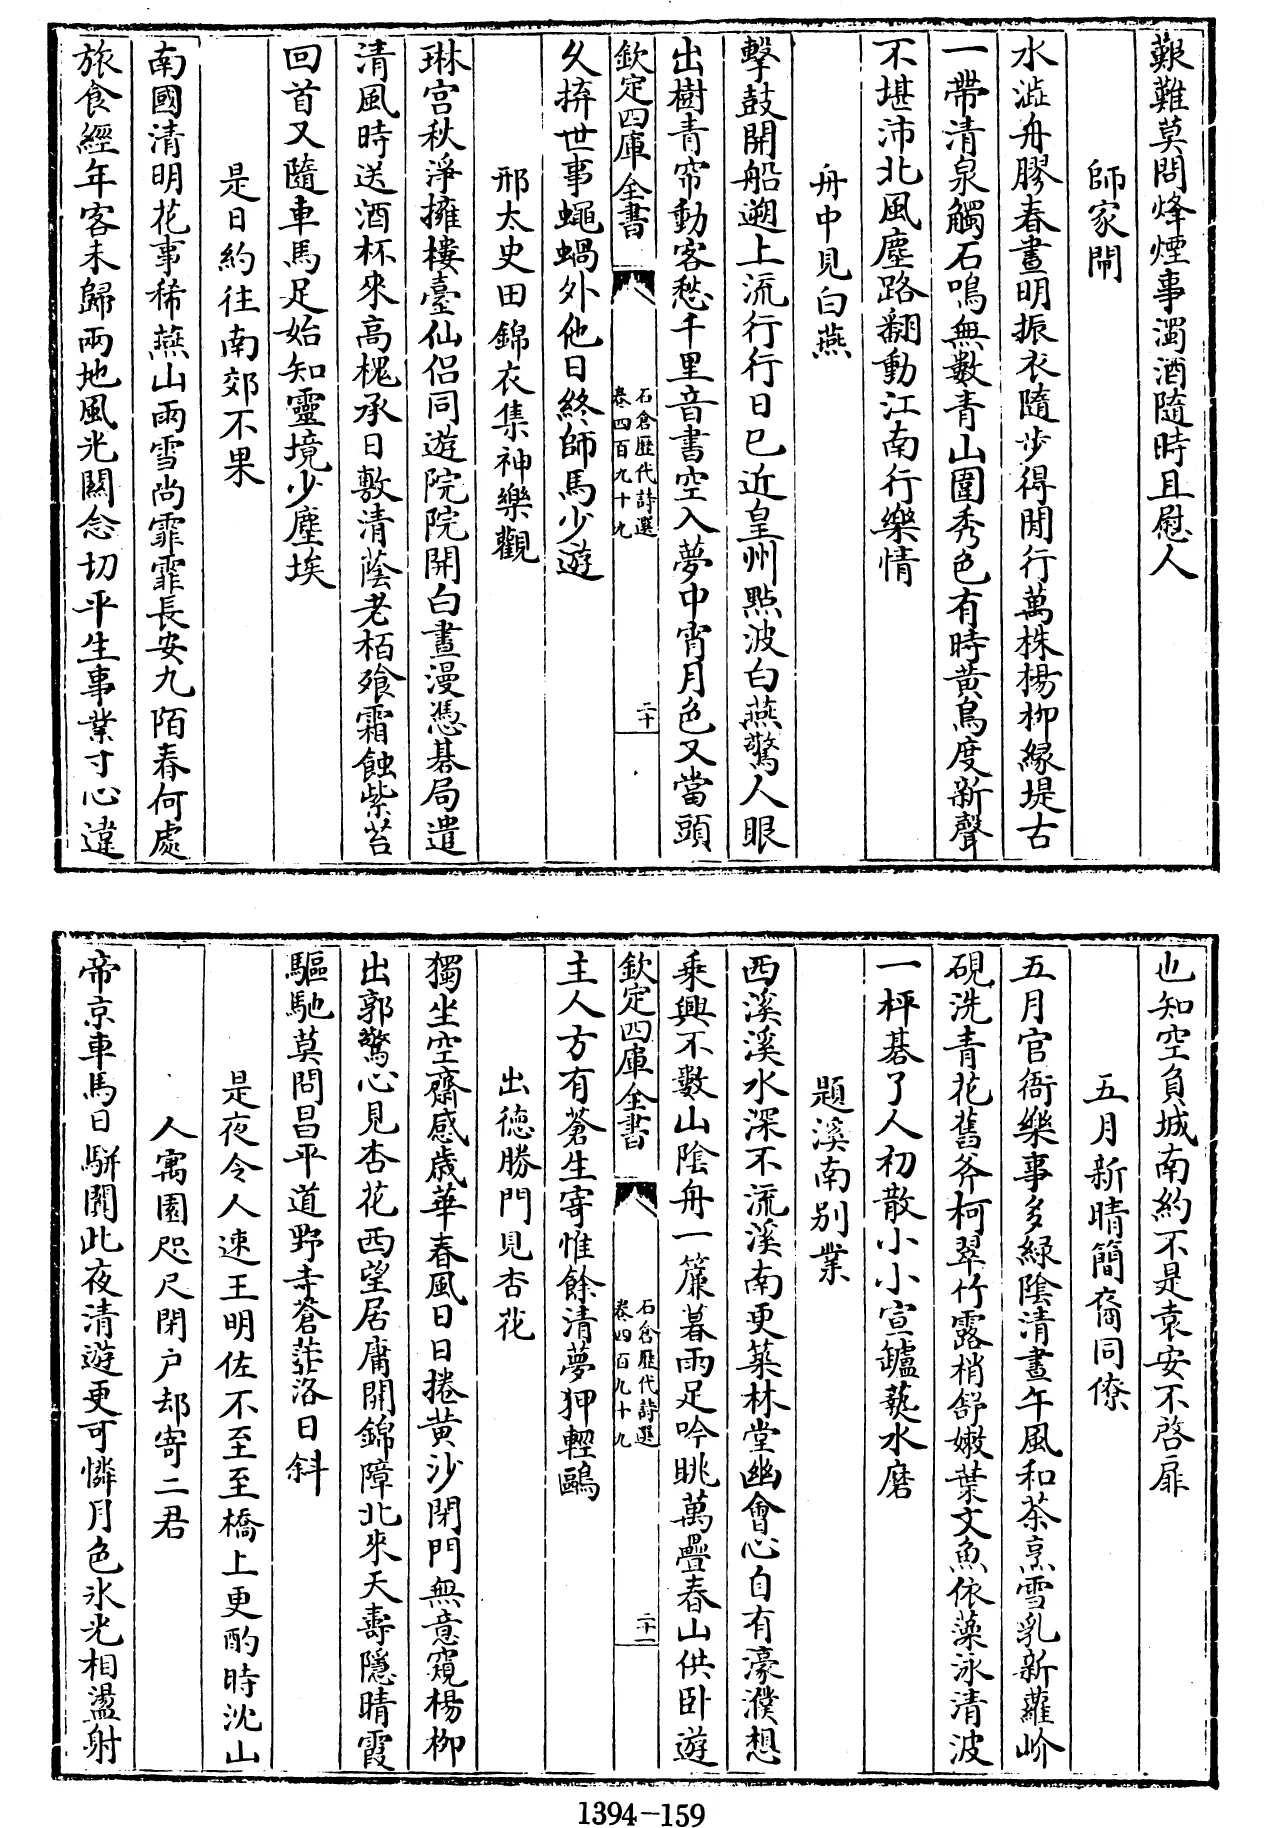 艱難莫問烽煙事濁酒隨時且慰人
師家閘
水澁舟膠春晝明振衣隨步得閒行萬株楊柳緣堤古
一帶清泉觸石鳴無數青山圍秀色有時黄鳥度新聲
不堪沛北風塵路翻動江南行樂情
舟中見白燕
擊鼓開船遡上流行行日已近皇州點波白燕驚人眼
出樹青帘動客愁千里音書空入夢中宵月色又當頭
欽定四庫全書
石倉歷代詩選
卷四百九十九
二十
久捹世事蠅蝸外他日終師馬少遊
邢太史田錦衣集神樂觀
琳宫秋淨擁樓臺仙侣同遊院院開白晝漫憑棊局遣
清風時送酒杯來高槐承日敷清蔭老栢飱霜蝕紫苔
回首又隨車馬足始知靈境少塵埃
是日約往南郊不果
南國清明花事稀燕山雨雪尚霏霏長安九陌春何處
旅食經年客未歸兩地風光關念切平生事業寸心違
也知空負城南約不是袁安不啓扉
五月新晴簡裔同僚
五月官衙樂事多緑陰清晝午風和茶烹雪乳新蘿岕
硯洗青花舊斧柯翠竹露梢舒嫩葉文魚依藻泳清波
一枰棊了人初散小小宣鑪爇水磨
題溪南别業
西溪溪水深不流溪南更築林堂幽會心自有濠濮想
乘興不數山陰舟一簾暮雨足吟眺萬疊春山供卧遊
欽定四庫全書
石倉歷代詩選
卷四百九十九
二十一
主人方有蒼生寄惟餘清夢狎輕鷗
出徳勝門見杏花
獨坐空齋感歳華春風日日捲黄沙閉門無意窺楊柳
出郭驚心見杏花西望居庸開錦障北來天壽隱晴霞
驅馳莫問昌平道野寺蒼茫落日斜
是夜令人速王明佐不至至橋上更酌時沈山
人寓園咫尺閉户却寄二君
帝京車馬日駢闐此夜清遊更可憐月色氷光相盪射
1394-159